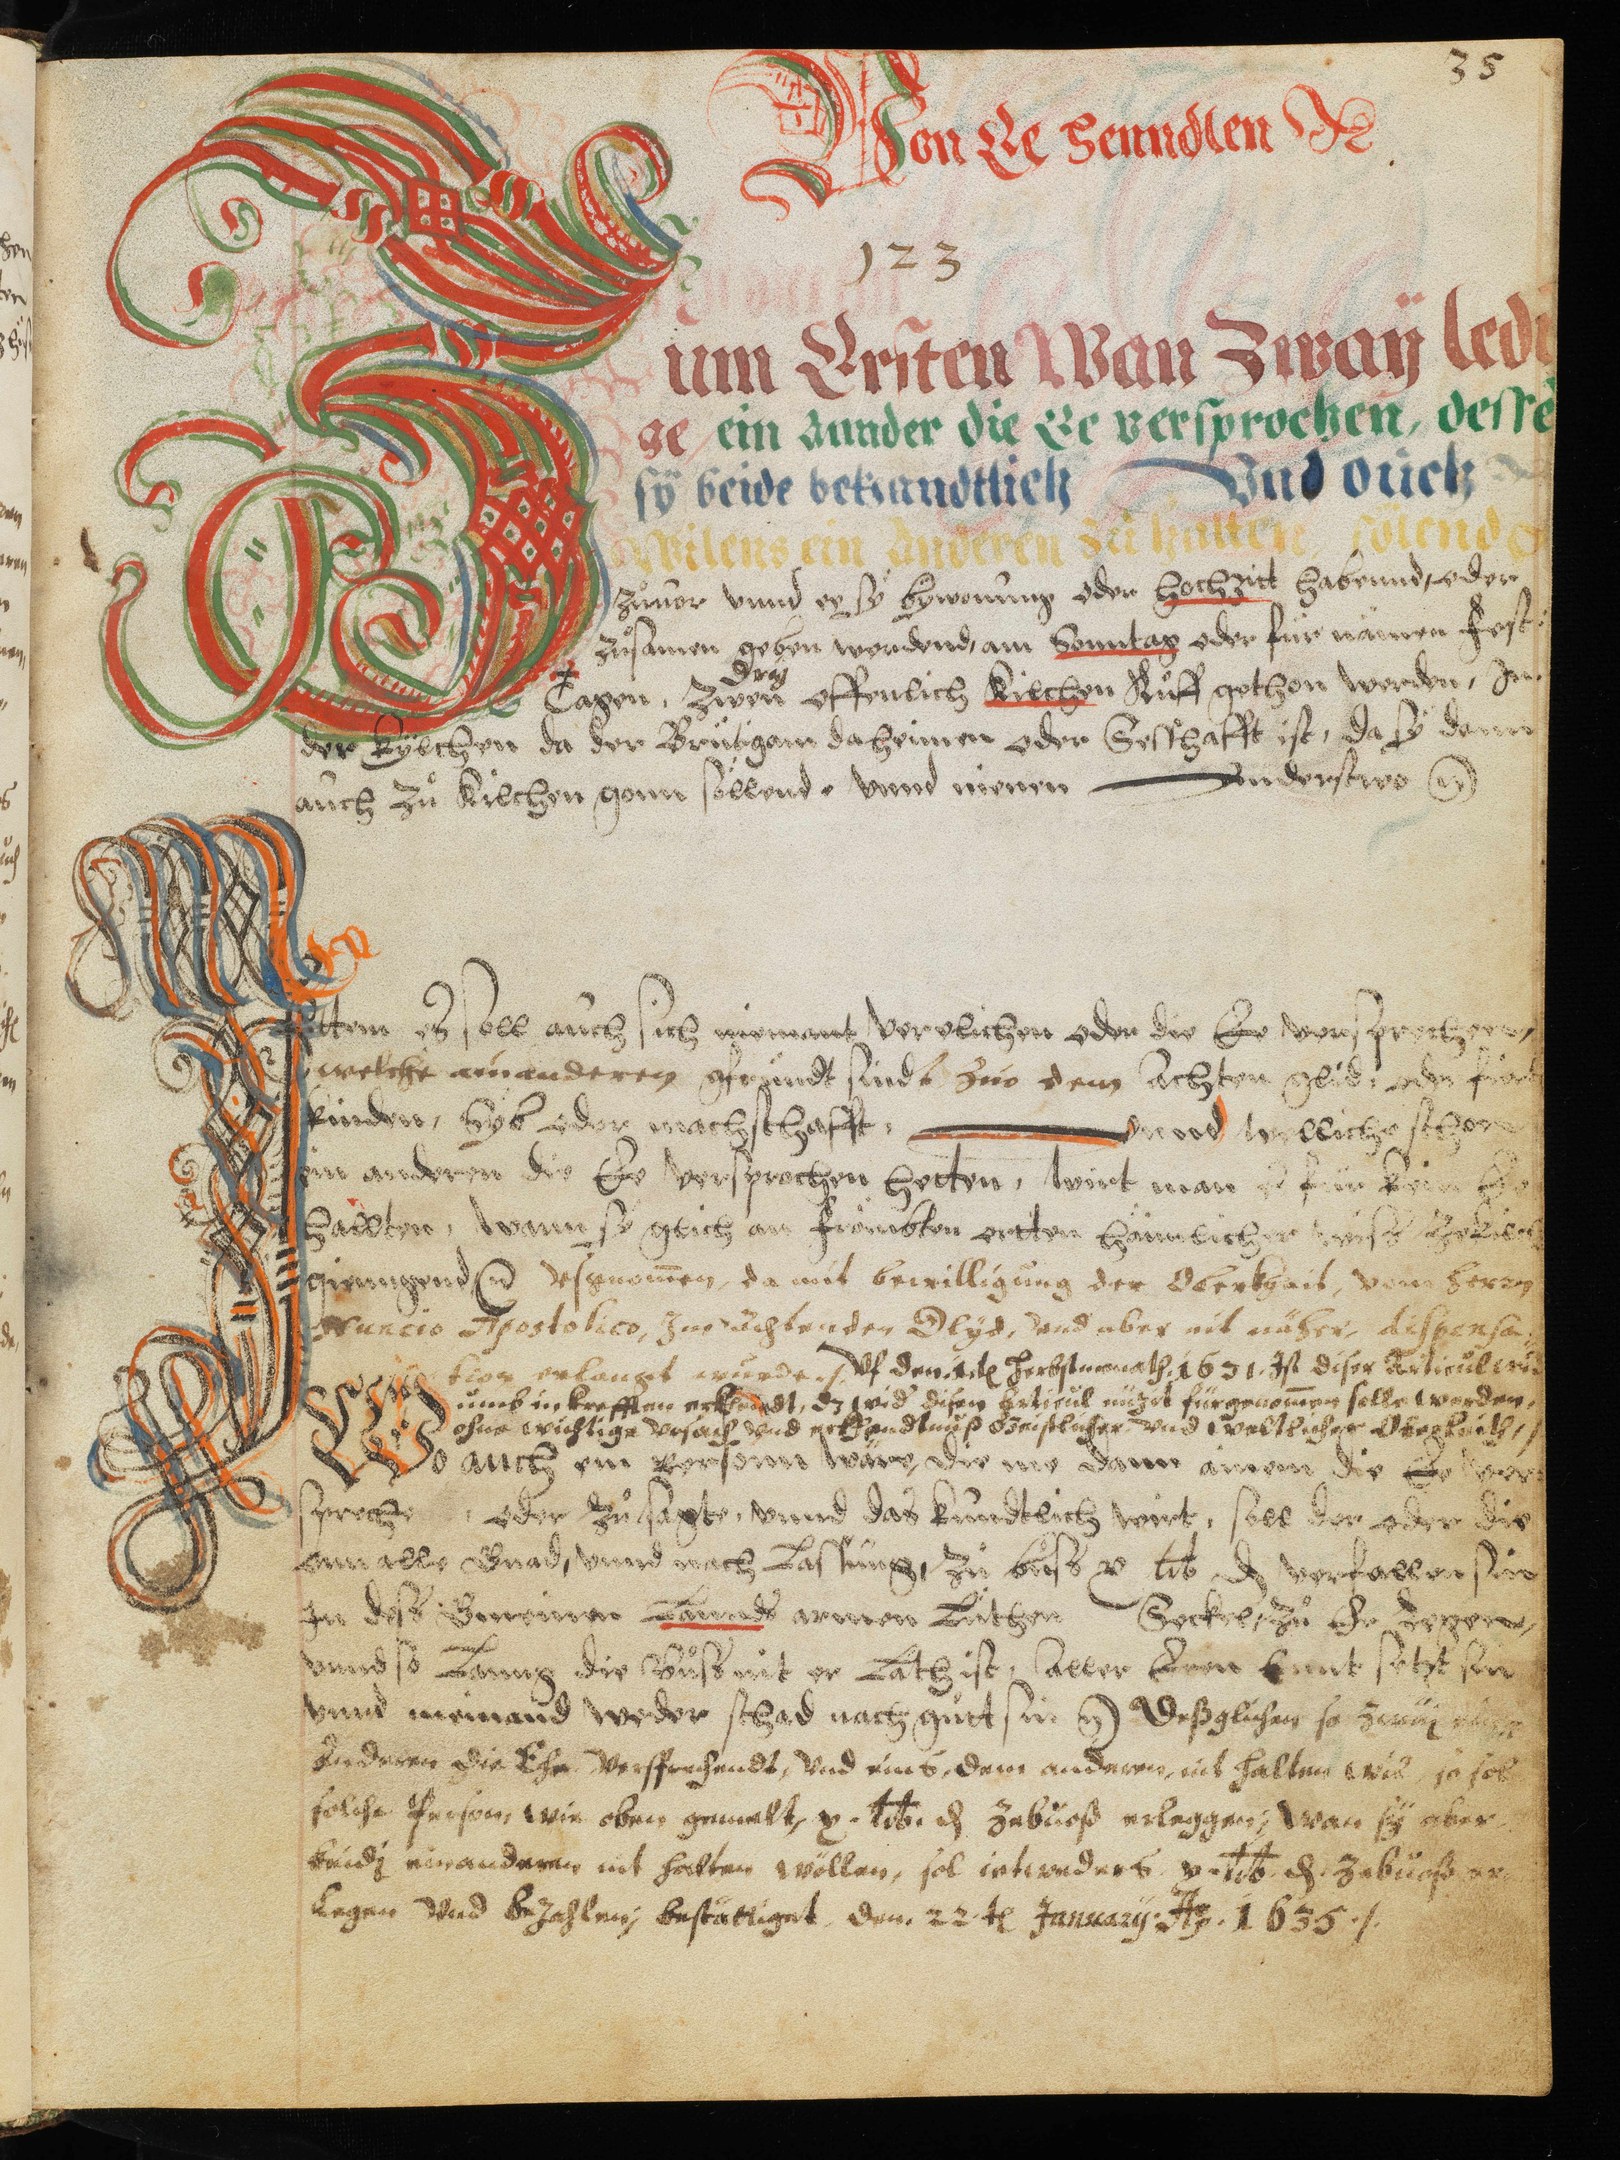 35
Von Ee Henndlen
123
Zum Ersten Wan Zwaÿ ledi
ge ein Annder die Ee versprochen, dessē
sÿ beide bekandtlich Vnd ouch
Wilens ein Anderen Zů halten, sölend
zůuor vnnd ee sÿ bÿwonung oder hochzitt habennd, oder
zůsamen geben werdend, am Sonntag oder für nämen Fest
Dry
Tagen, Zwen offenlich Kilchen Růff gethon werden, In
der Kÿlchen da der Brütigam daheimen oder Sesshafft ist, da sÿ dann
auch Zů Kilchen gonn söllend. vnnd nienen Anderstwo
Ittem eß soll auch sich niemant Verelichen oder die Ee versprechen,
welche ainanderen gfründt sindt Zuo dem Achten glid, oder
kinden, Syb oder machschafft, vnnd welliche schon
ein anderen die Ee versprochen hetten, wirt man es für kein Ee
hallten, Wann sÿ glich an frömbten ortten haimlicher wiss
giennngend vsgnommen, da mit bewilligung der Oberkhait, vom herren
Nuncio Apostolico, Im achtenden Glyd, vnd aber nit näher, dispensa-
tion erlangt wurde. Vf den 1.te Herbstmonath. 1631. Ist diser Articul
umb in krefften erkhendt, dz wider disen Articul nüzit fürgenommen solle werden,
ohne wichtige vrsach vnd erkhandtnuß Geistlicher vnd weltlicher Oberkeith,
Wo auch ein person wäre, die me dann ainem die Ee ver
spreche, oder Zůsagte, vnnd das kundtlich wirt, soll der oder die
onn alle Gnad, vnnd nach Lassung, Zů bůss x lib d verfallen sin
In dess Gmeinen Lannds armen Lüthen Seckel, Zů Er legen,
vnnd so Lanng die Bůss nit er Lath ist, aller Eren Enntsetzt sin
vnnd niemand weder schad nach gutt sin Deßglichen so zwey ein
Anderen die Ehe versprechendt, vnd eins, dem anderen nit halten wil, so sol
solche Person, wie oben gemelt, x. lib. d Zebuoß erleggen, Wan sÿ aber
beidi einanderen nit halten wöllen, sol ietweders x. lib. d. Zebuoß er
legen vnd bezahlen, bestättiget den. 22.te January. Aō. 1635.